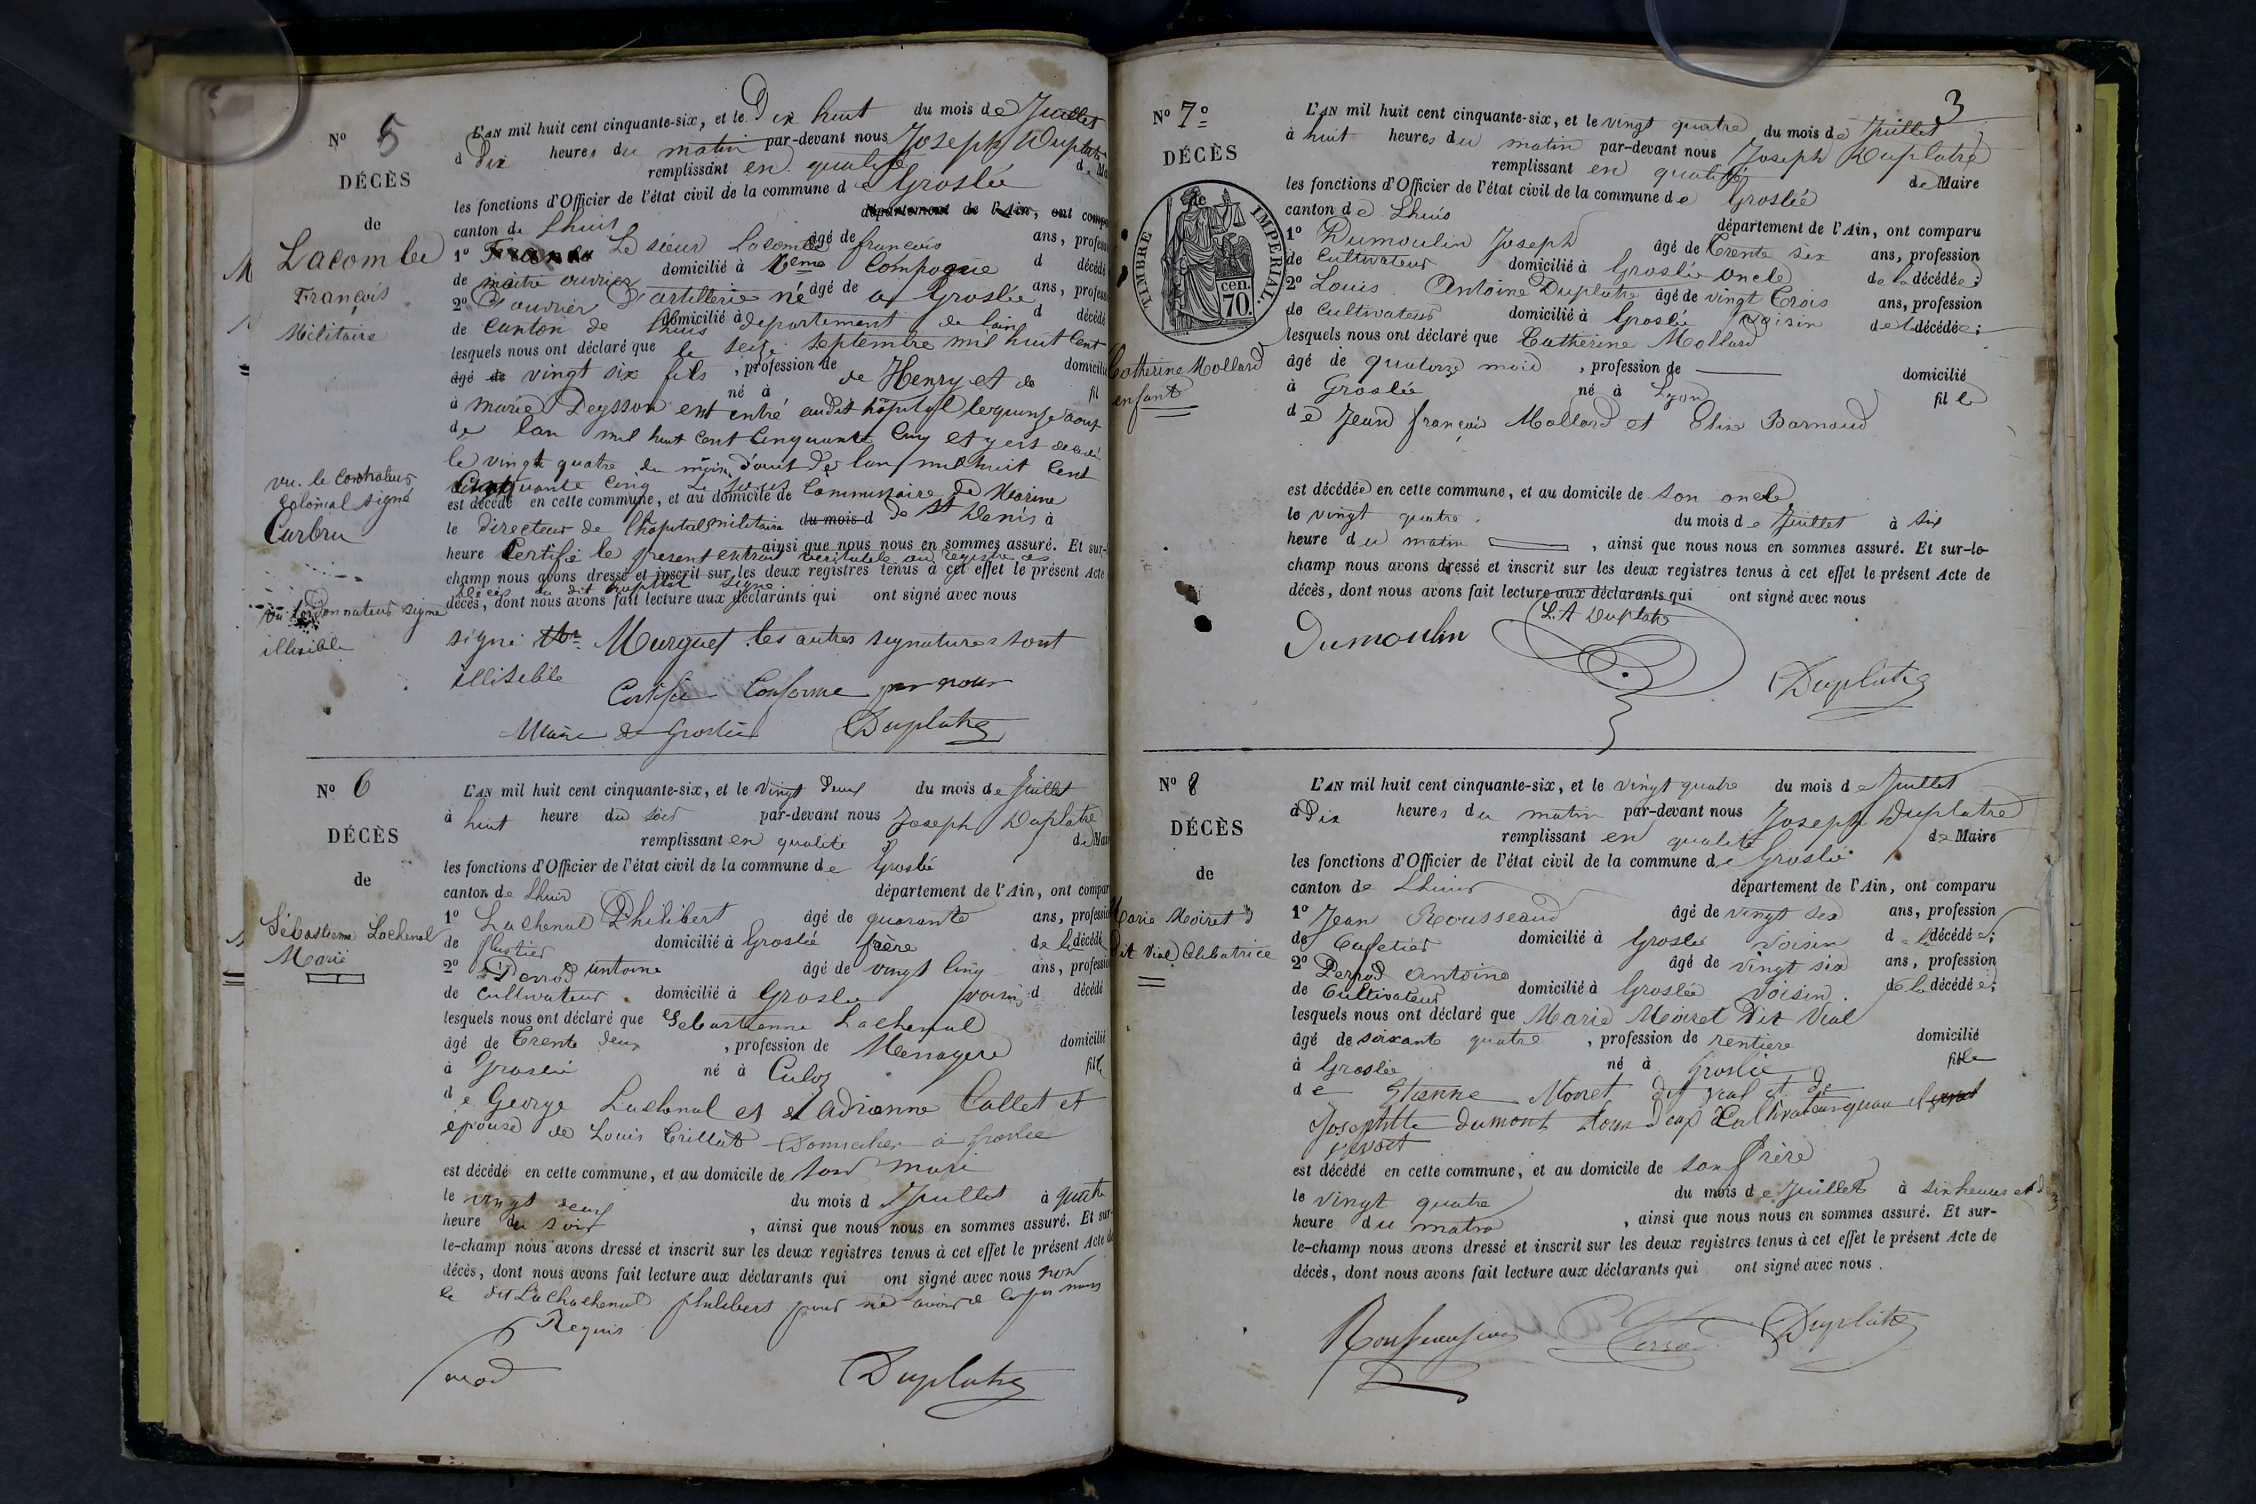 N° 5
DÉCÈS
de
Lacombe
François
Militaire
vu. le Controleur
Colonial signé
vu l'ordonnateur signé
illisible
L'AN mil huit cent cinquante-six, et le Dix huit du mois de Juillet
à Dix heures du matin par-devant nous Joseph Duplatre
remplissant en qualité de
les fonctions d'Officier de l'état civil de la commune de Groslée
canton de Lhuis département de l'Ain, ont
1° Le sieur Lacombe âgé de françois ans,
de maitre ouvrier domicilié à Compagnie d décédé
2° D'ouvrier D'artillerie né âgé de a Groslée ans,
de Canton de Lhuis domicilié à departement de lain d décédé
lesquels nous ont déclaré que le seize septembre mil huit Cent
âgé de vingt six fils , profession de de Henry et de
né à fil
à Marie Peysson est entré audit hôpital le quinze aout
de lan mil huit Cent Cinquante Cinq et y est décédé
le vingt quatre du mois d'aout De lan mil huit Cent
Cinquante Cinq Commissaire de Marine
est décédé en cette commune, et au domicile de
le directeur de lhopital militaire du mois d de St Denis à
heure Certifie le present extrait véritable au registre
ainsi que nous nous en sommes assuré. Et sur-
champ nous avons dressé et inscrit sur les deux registres tenus à cet effet le présent Acte
décès du dit hopital signé
décès, dont nous avons fait lecture aux déclarants qui ont signé avec nous
signé Murguet les autres signatures sont
illisible
Certifié Conforme par nous
Maire de Groslée Duplatre
N° 6
DÉCÈS
de
Sébastienne Lachenal
Marie
L'AN mil huit cent cinquante-six, et le vingt Deux du mois de Juillet
à huit heure du soir par-devant nous Joseph Duplatre
remplissant en qualité de
les fonctions d'Officier de l'état civil de la commune de Groslée
canton de Lhuis département de l'Ain, ont
1° Lachenal Philibert âgé de quarante ans, profession
de domicilié à Groslée frère de la décédé
2° Perrod antoine âgé de vingt Cinq ans, profession
de Cultivateur domicilié à Groslée voisin d décédé
lesquels nous ont déclaré que Sebastienne Lachenal
âgé de Trente Deux , profession de Menagere domicilié
à Groslée né à Culoz fille
de George Lachenal et de adrianne Callet et
épouse de Louis Trillat Domicilier à Groslée
est décédé en cette commune, et au domicile de son mari
le vingt deux du mois d Juillet à quatre
heure du soir , ainsi que nous nous en sommes assuré. Et sur-
le-champ nous avons dressé et inscrit sur les deux registres tenus à cet effet le présent Acte de
décès, dont nous avons fait lecture aux déclarants qui ont signé avec nous non
le dit Lachenal philibert pour ne savoir de ce par nous
Requis
Duplatre
3
N° 7°
DÉCÈS
de
TIMBRE IMPÉRIAL.
70. cen.
Catherine Mollard
enfant
L'AN mil huit cent cinquante-six, et le vingt quatre du mois de Juillet
à huit heures du matin par-devant nous Joseph Duplatre
remplissant en qualité de Maire
les fonctions d'Officier de l'état civil de la commune de Groslée
canton de Lhuis département de l'Ain, ont comparu
1° Dumoulin Joseph âgé de Trente six ans, profession
de Cultivateur domicilié à Groslée oncle de la décédée;
2° Louis Antoine Duplatre âgé de vingt Trois ans, profession
de Cultivateur domicilié à Groslée voisin de la décédée;
lesquels nous ont déclaré que Catherine Mollard
âgé de quatorze mois , profession de domicilié
à Groslée né à Lyon fille
de Jean françois Mollard et Elise Barnoud
est décédée en cette commune, et au domicile de son oncle
le vingt quatre du mois de Juillet à six
heure du matin , ainsi que nous nous en sommes assuré. Et sur-le-
champ nous avons dressé et inscrit sur les deux registres tenus à cet effet le présent Acte de
décès, dont nous avons fait lecture aux déclarants qui ont signé avec nous
L.A Duplatre
Dumoulin
Duplatre
N° 8
DÉCÈS
de
Marie Moiret
dit Vial Célibatrice
L'AN mil huit cent cinquante-six, et le vingt quatre du mois de Juillet
à Dix heures du matin par-devant nous Joseph Duplatre
remplissant en qualité de Maire
les fonctions d'Officier de l'état civil de la commune de Groslée
canton de Lhuis département de l'Ain, ont comparu
1° Jean Rousseaud âgé de vingt six ans, profession
de Cafetier domicilié à Groslée voisin de la décédée;
2° Perrod Antoine âgé de vingt six ans, profession
de Cultivateur domicilié à Groslée Voisin de la décédée;
lesquels nous ont déclaré que Marie Moiret Dit Vial
âgé de soixante quatre , profession de rentiere domicilié
à Groslée né à Groslée fille
de Etienne Moiret dit vial et de
Josephtte dumont
est décédé en cette commune, et au domicile de son frère
le vingt quatre du mois de Juillet à six heures et
heure du matin , ainsi que nous nous en sommes assuré. Et sur-
le-champ nous avons dressé et inscrit sur les deux registres tenus à cet effet le présent Acte de
décès, dont nous avons fait lecture aux déclarants qui ont signé avec nous.
Duplatre